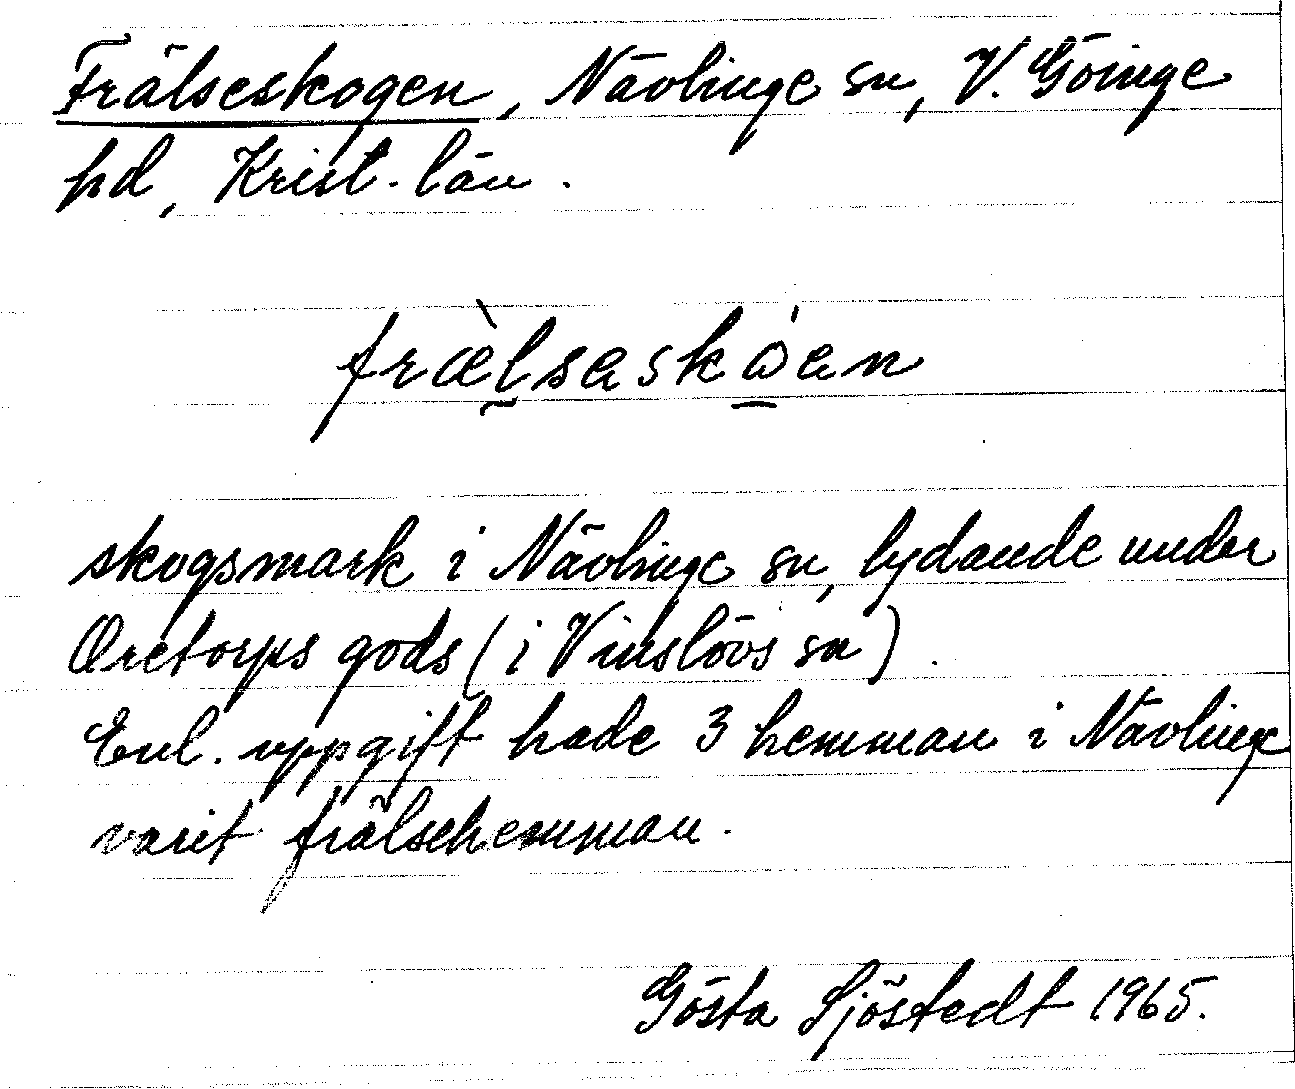 Frälseskogen, Nävlinge sn, V. Göinge
hd, Krist. län.
fræ̀lsaskòan
skogsmark i Nävlinge sn, lydande under
Oretorps gods (i Vinslövs sn).
Enl. uppgift hade 3 hemman i Nävlinge
varit frälsehemman.
Gösta Sjöstedt 1965.